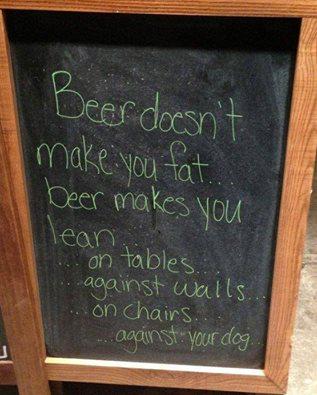 Beer doesn't
make you fat...
beer makes you
lean
... on tables...
... against walls...
... on chairs...
... against your dog...